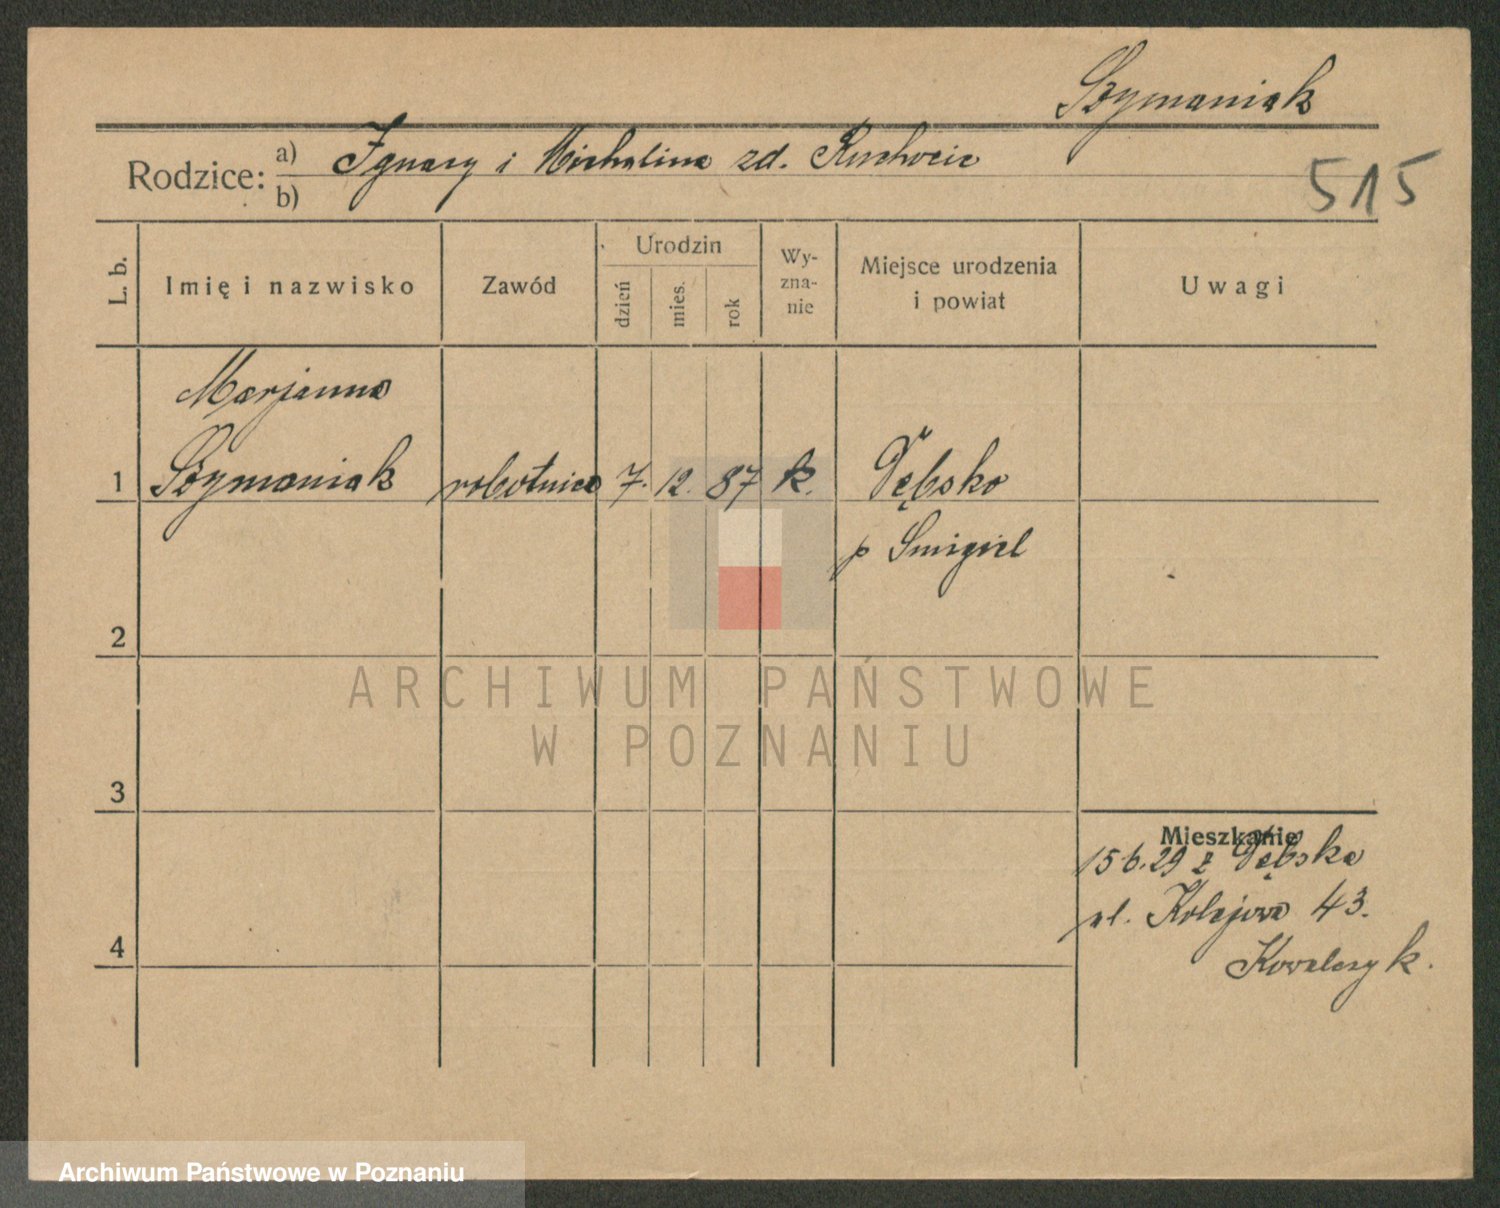 Szymaniak
Rodzice: a) Ignacy i Michalina zd.
b)
515
L. b.
Imię i nazwisko
Zawód
Urodzin
dzień
mies.
rok
Wy-
zna-
nie
Miejsce urodzenia
i powiat
Uwagi
Marjanna
1 Szymaniak robotnica 7. 12. 87 k. Dębsko
p Śmigiel
2
ARCHIWUM PAŃSTWOWE
W POZNANIU
3
Mieszkanie
15 6. 29 z Dębska
ul. Kolejowa 43.
4
Kowalczyk.
Archiwum Państwowe w Poznaniu